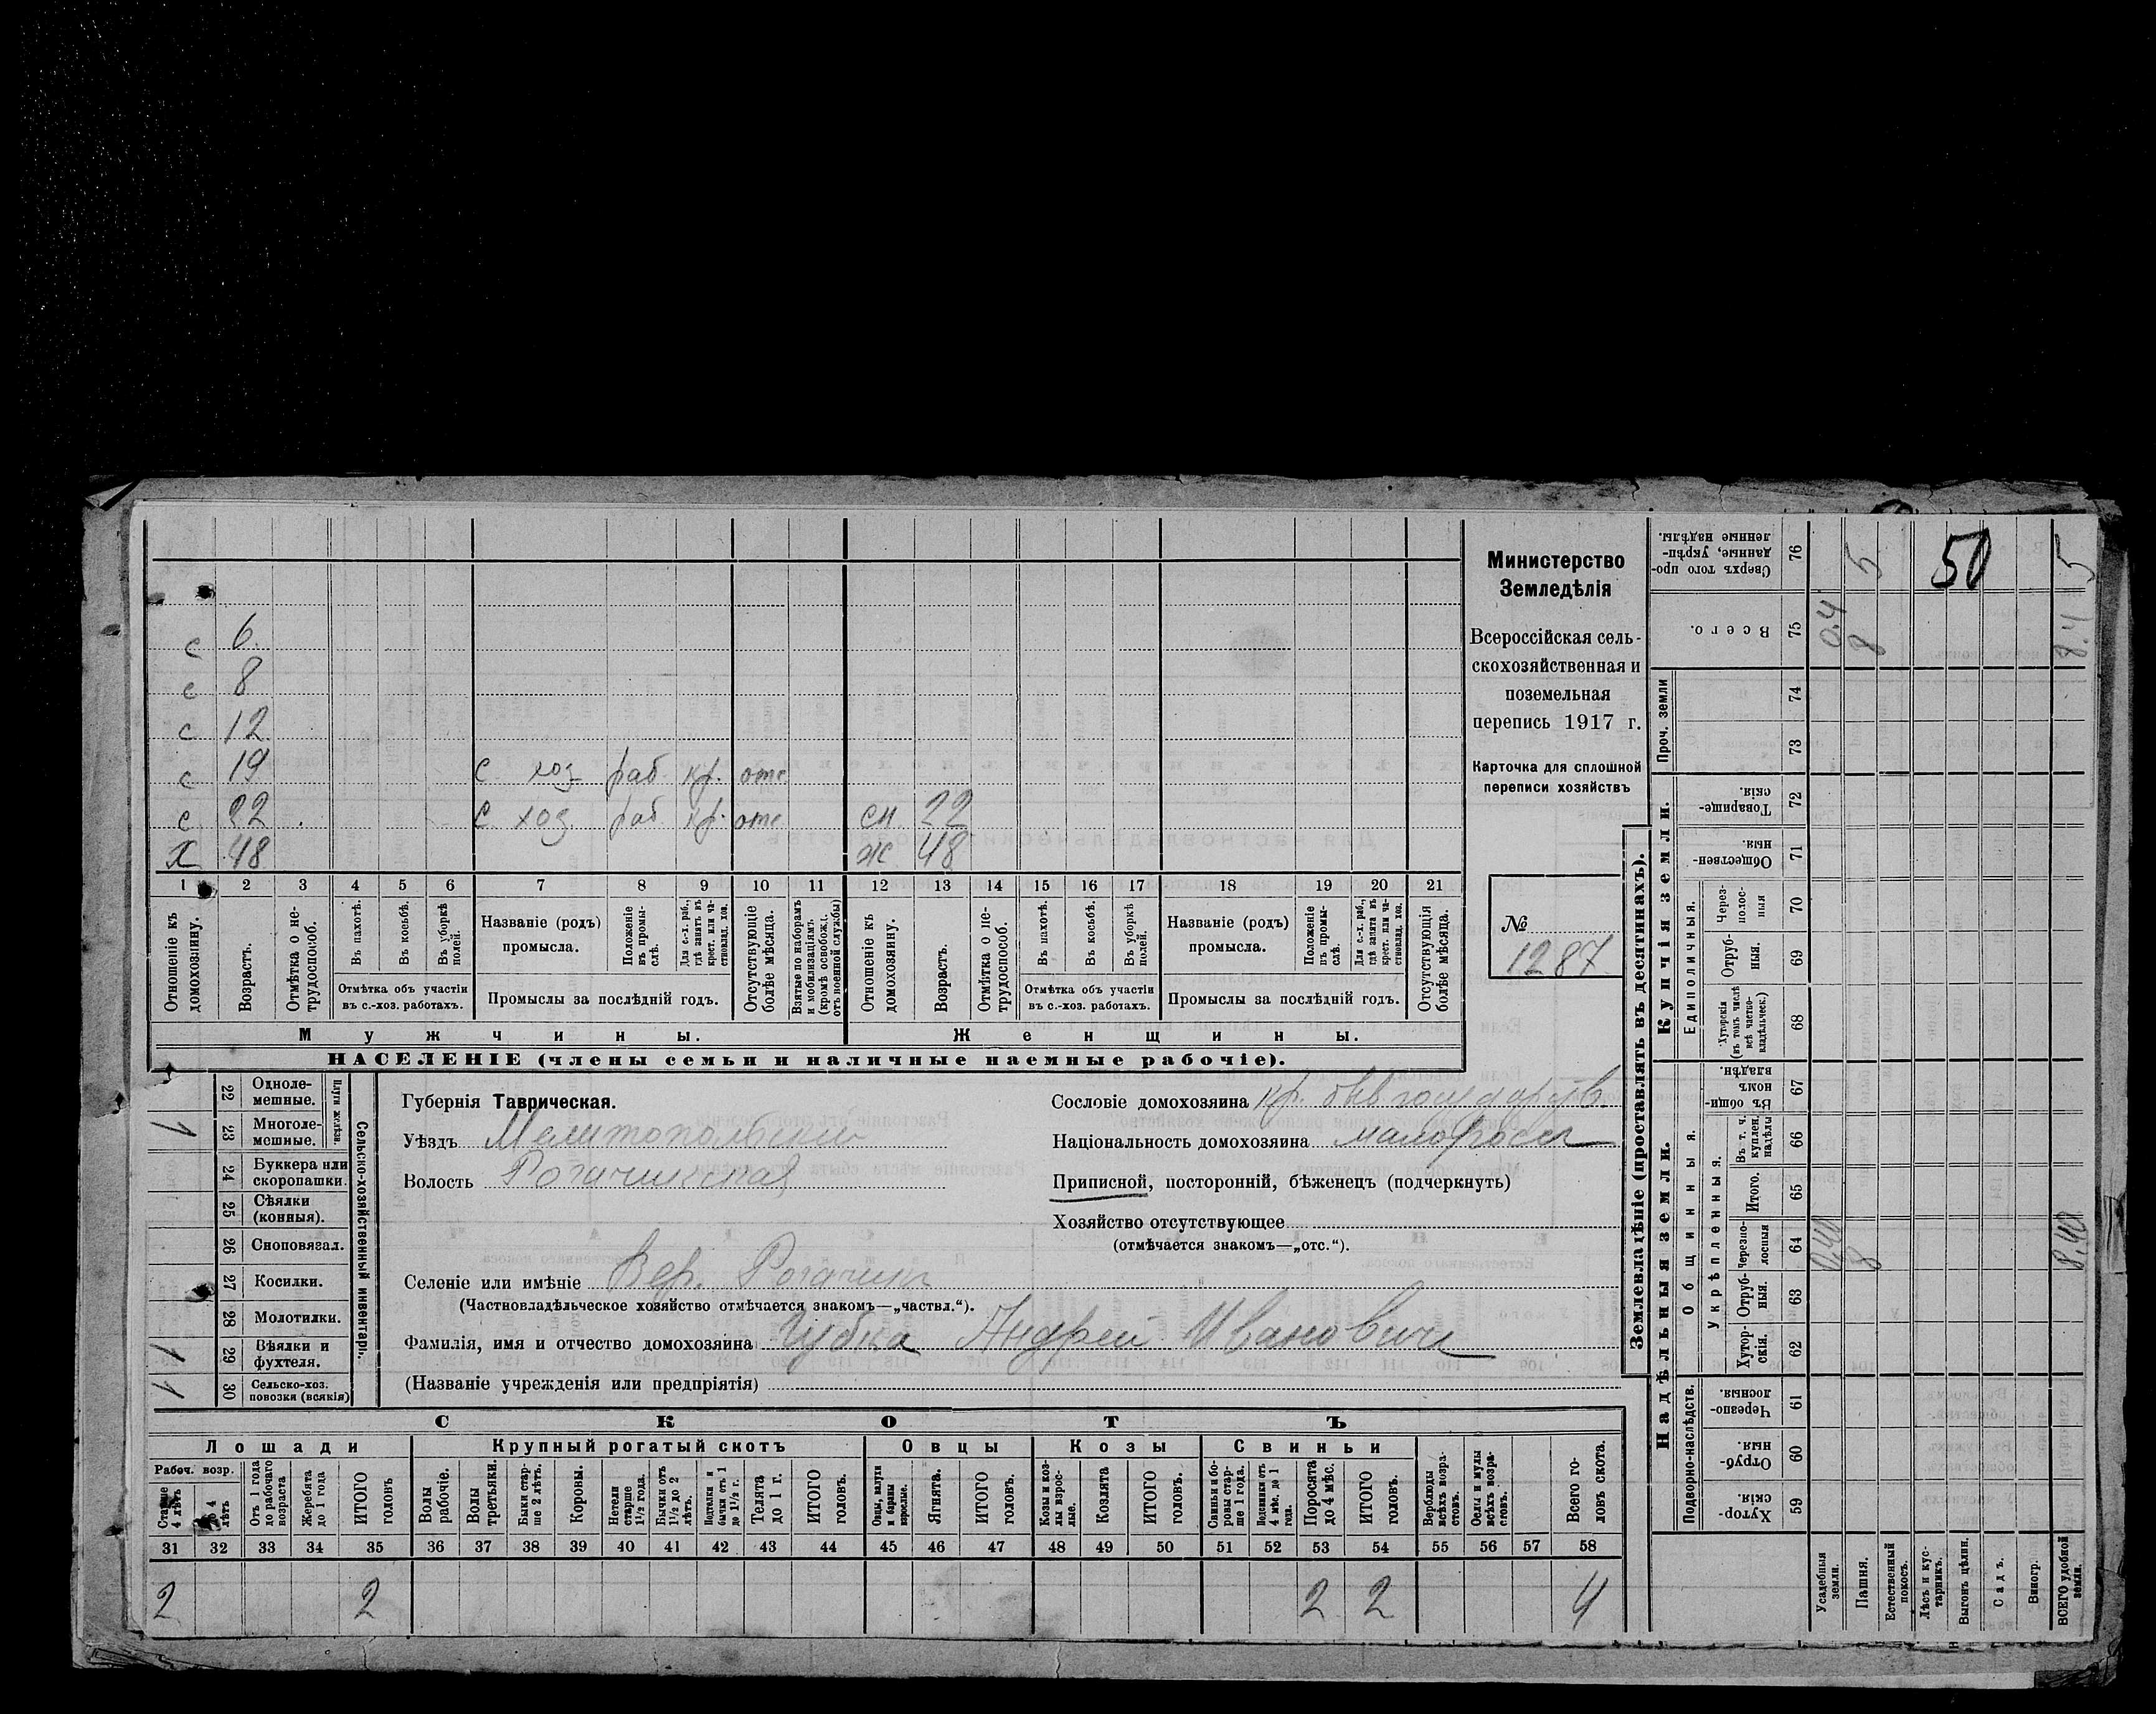 Министерство
Земледѣлія
Всероссійская сель-
скохозяйственная и
поземельная
перепись 1917 г.
Карточка для сплошной
переписи хозяйствъ
№
1287
с 6.
с 8
с 12
с 19 с хоз раб кр. отс
с 22 с хоз. раб кр. отс сн 22
х 48 ж 48
1 2 3 4 5 6 7 8 9 10 11 12 13 14 15 16 17 18 19 20 21
Отношеніе къ домохозяину.
Возрастъ.
Отмѣтка о не-трудоспособ.
Въ пахотѣ.
Въ косьбѣ.
Въ уборкѣ полей.
Отмѣтка объ участіи
въ с.-хоз. работахъ.
Названіе (родъ)
промысла.
Положеніе въ промы-слѣ.
Для с.-х. раб., гдѣ занятъ въ крест. или ча-стновлад. хоз.
Промыслы за послѣдній годъ.
Отсутствующіе болѣе мѣсяца.
Взятые по наборамъ и мобилизаціямъ (кромѣ освобожд. отъ военной службы)
Отношеніе къ домохозяину.
Возрастъ.
Отмѣтка о не-трудоспособ.
Въ пахотѣ.
Въ косьбѣ.
Въ уборкѣ полей.
Отмѣтка объ участіи
въ с.-хоз. работахъ.
Названіе (родъ)
промысла.
Положеніе въ промы-слѣ.
Для с.-х. раб., гдѣ занятъ въ крест. или ча-стновлад. хоз.
Промыслы за послѣдній годъ.
Отсутствующія болѣе мѣсяца.
Мужчины. Женщины.
НАСЕЛЕНІЕ (члены семьи и наличные наемные рабочіе).
Сельско-хозяйственный инвентарь.
22 Одноле-мешные.
23 Многоле-мешные. 1
24 Буккера или скоропашки.
25 Сѣялки (конныя).
26 Сноповязал.
27 Косилки.
28 Молотилки.
29 Вѣялки и фухтеля. 1
30 Сельско-хоз. повозки (всякія) 1
Губернія Таврическая.
Уѣздъ Мелитопольскій
Волость Рогачикская
Селеніе или имѣніе Вер. Рогачик
(Частновладѣльческое хозяйство отмѣчается знакомъ—„частвл.“).
Фамилія, имя и отчество домохозяина Губка Андрей Иванович
(Названіе учрежденія или предпріятія)
Сословіе домохозяина кр. быв государств.
Національность домохозяина малоросс
Приписной, посторонній, бѣженец (подчеркнуть)
Хозяйство отсутствующее
(отмѣчается знакомъ—„отс.“).
СКОТЪ
Лошади Крупный рогатый скотъ Овцы Козы Свиньи
Рабоч. возр.
Старше 4 лѣтъ
До 4 лѣтъ
Отъ 1 года до рабочаго возраста
Жеребята до 1 года
ИТОГО головъ
Волы рабочіе.
Волы третьяки.
Быки стар-ше 2 лѣтъ.
Коровы.
Нетели старше 1½ года.
Бычки отъ 1½ до 2 лѣтъ.
Подтелки и бычки отъ 1 до 1½ г.
Телята до 1 г.
ИТОГО головъ.
Овцы, валухи и бараны взрослые.
Ягнята.
ИТОГО головъ.
Козы и коз-лы взрос-лые.
Козлята
ИТОГО головъ.
Свиньи и бо-ровы стар-ше 1 года.
Подсвинки отъ 4 мѣс. до 1 года.
Поросята до 4 мѣс.
ИТОГО головъ.
Верблюды всѣхъ возра-стовъ.
Ослы и мулы всѣхъ возра-стовъ.
Всего го-ловъ скота.
31 32 33 34 35 36 37 38 39 40 41 42 43 44 45 46 47 48 49 50 51 52 53 54 55 56 57 58
2 2 2 2 4
Землевладѣніе (проставлять въ десятинахъ).
Надѣльныя земли. Купчія земли. Проч. земли
Подворно-наслѣдств.
Общинныя.
Укрѣпленныя.
Единоличныя.
76 Сверхъ того про-даныя, укрѣп-ленные надѣлы. 5 50 5
75 Всего. 0.4 8 8.4
74
73
72 Товарище-скія
71 Обществен-ныя.
70 Через-полос-ныя
69 Отруб-ныя.
68 Хуторскія (въ томъ числѣ всѣ частно-владѣльческ.)
67 Въ общи-номъ владѣн.
66 Въ т. ч. куплен. надѣлы
65 Итого.
64 Черезпо-лосныя 0,40 8 8.40
63 Отруб-ныя.
62 Хутор-скія.
61 Черезпо-лосныя.
60 Отруб-ныя.
59 Хутор-скія.
Усадебныя земли.
Пашня.
Естественный покосъ.
Лѣсъ и кус-тарникъ.
Выгонъ цѣлин.
Садъ.
Виногр.
ВСЕГО удобной земли.